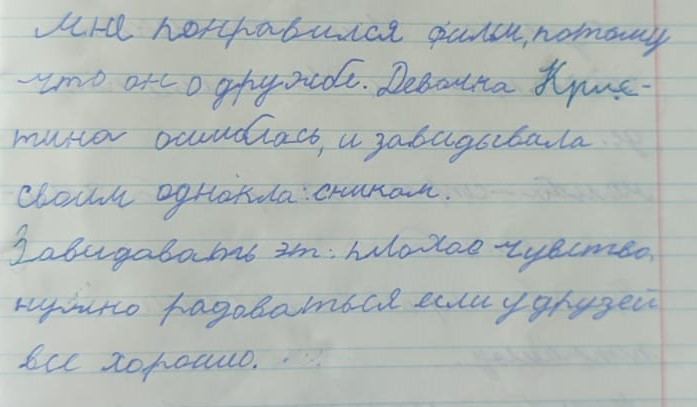 Мне понравился фильм, потому
что он о дружбе. Девочка Крис-
тина ошиблась, и завидывала
своим однокла:сникам.
Завидавать эт: плохое чувство,
нужно радоваться если у друзей
все хорошо.